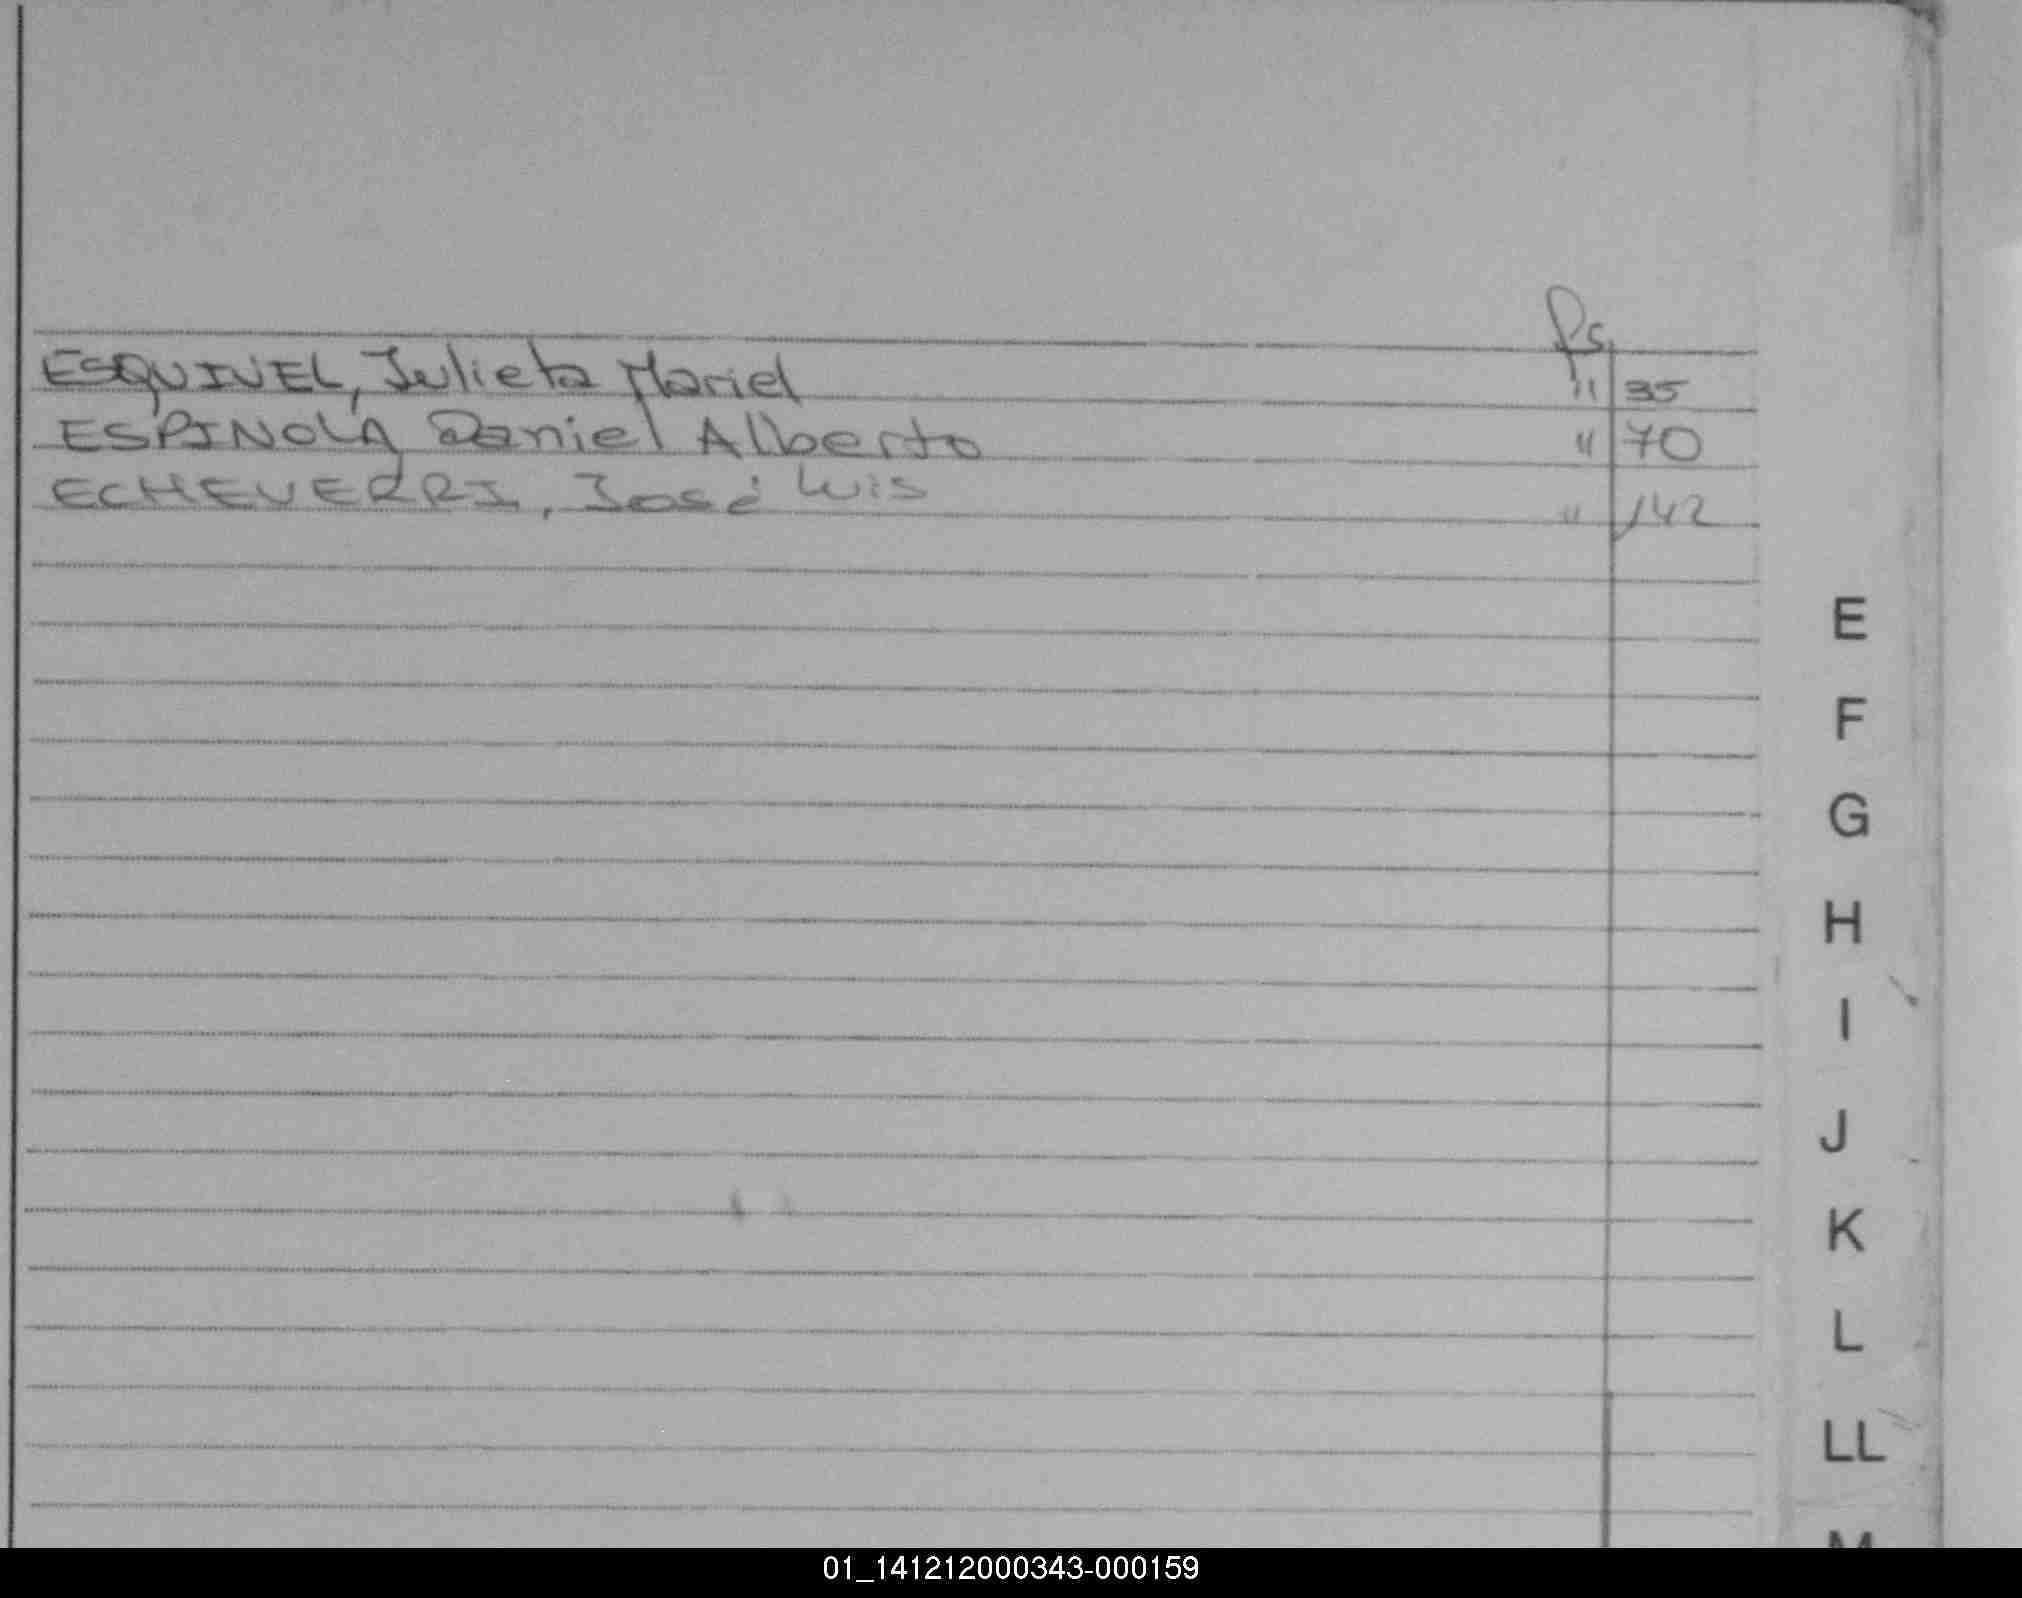 fs.
ESQUIVEL, Julieta Mariel " 35
ESPINOLA Daniel Alberto " 70
ECHEVERRI, José Luis " 142
E
F
G
H
I
J
K
L
LL
M
01_141212000343-000159